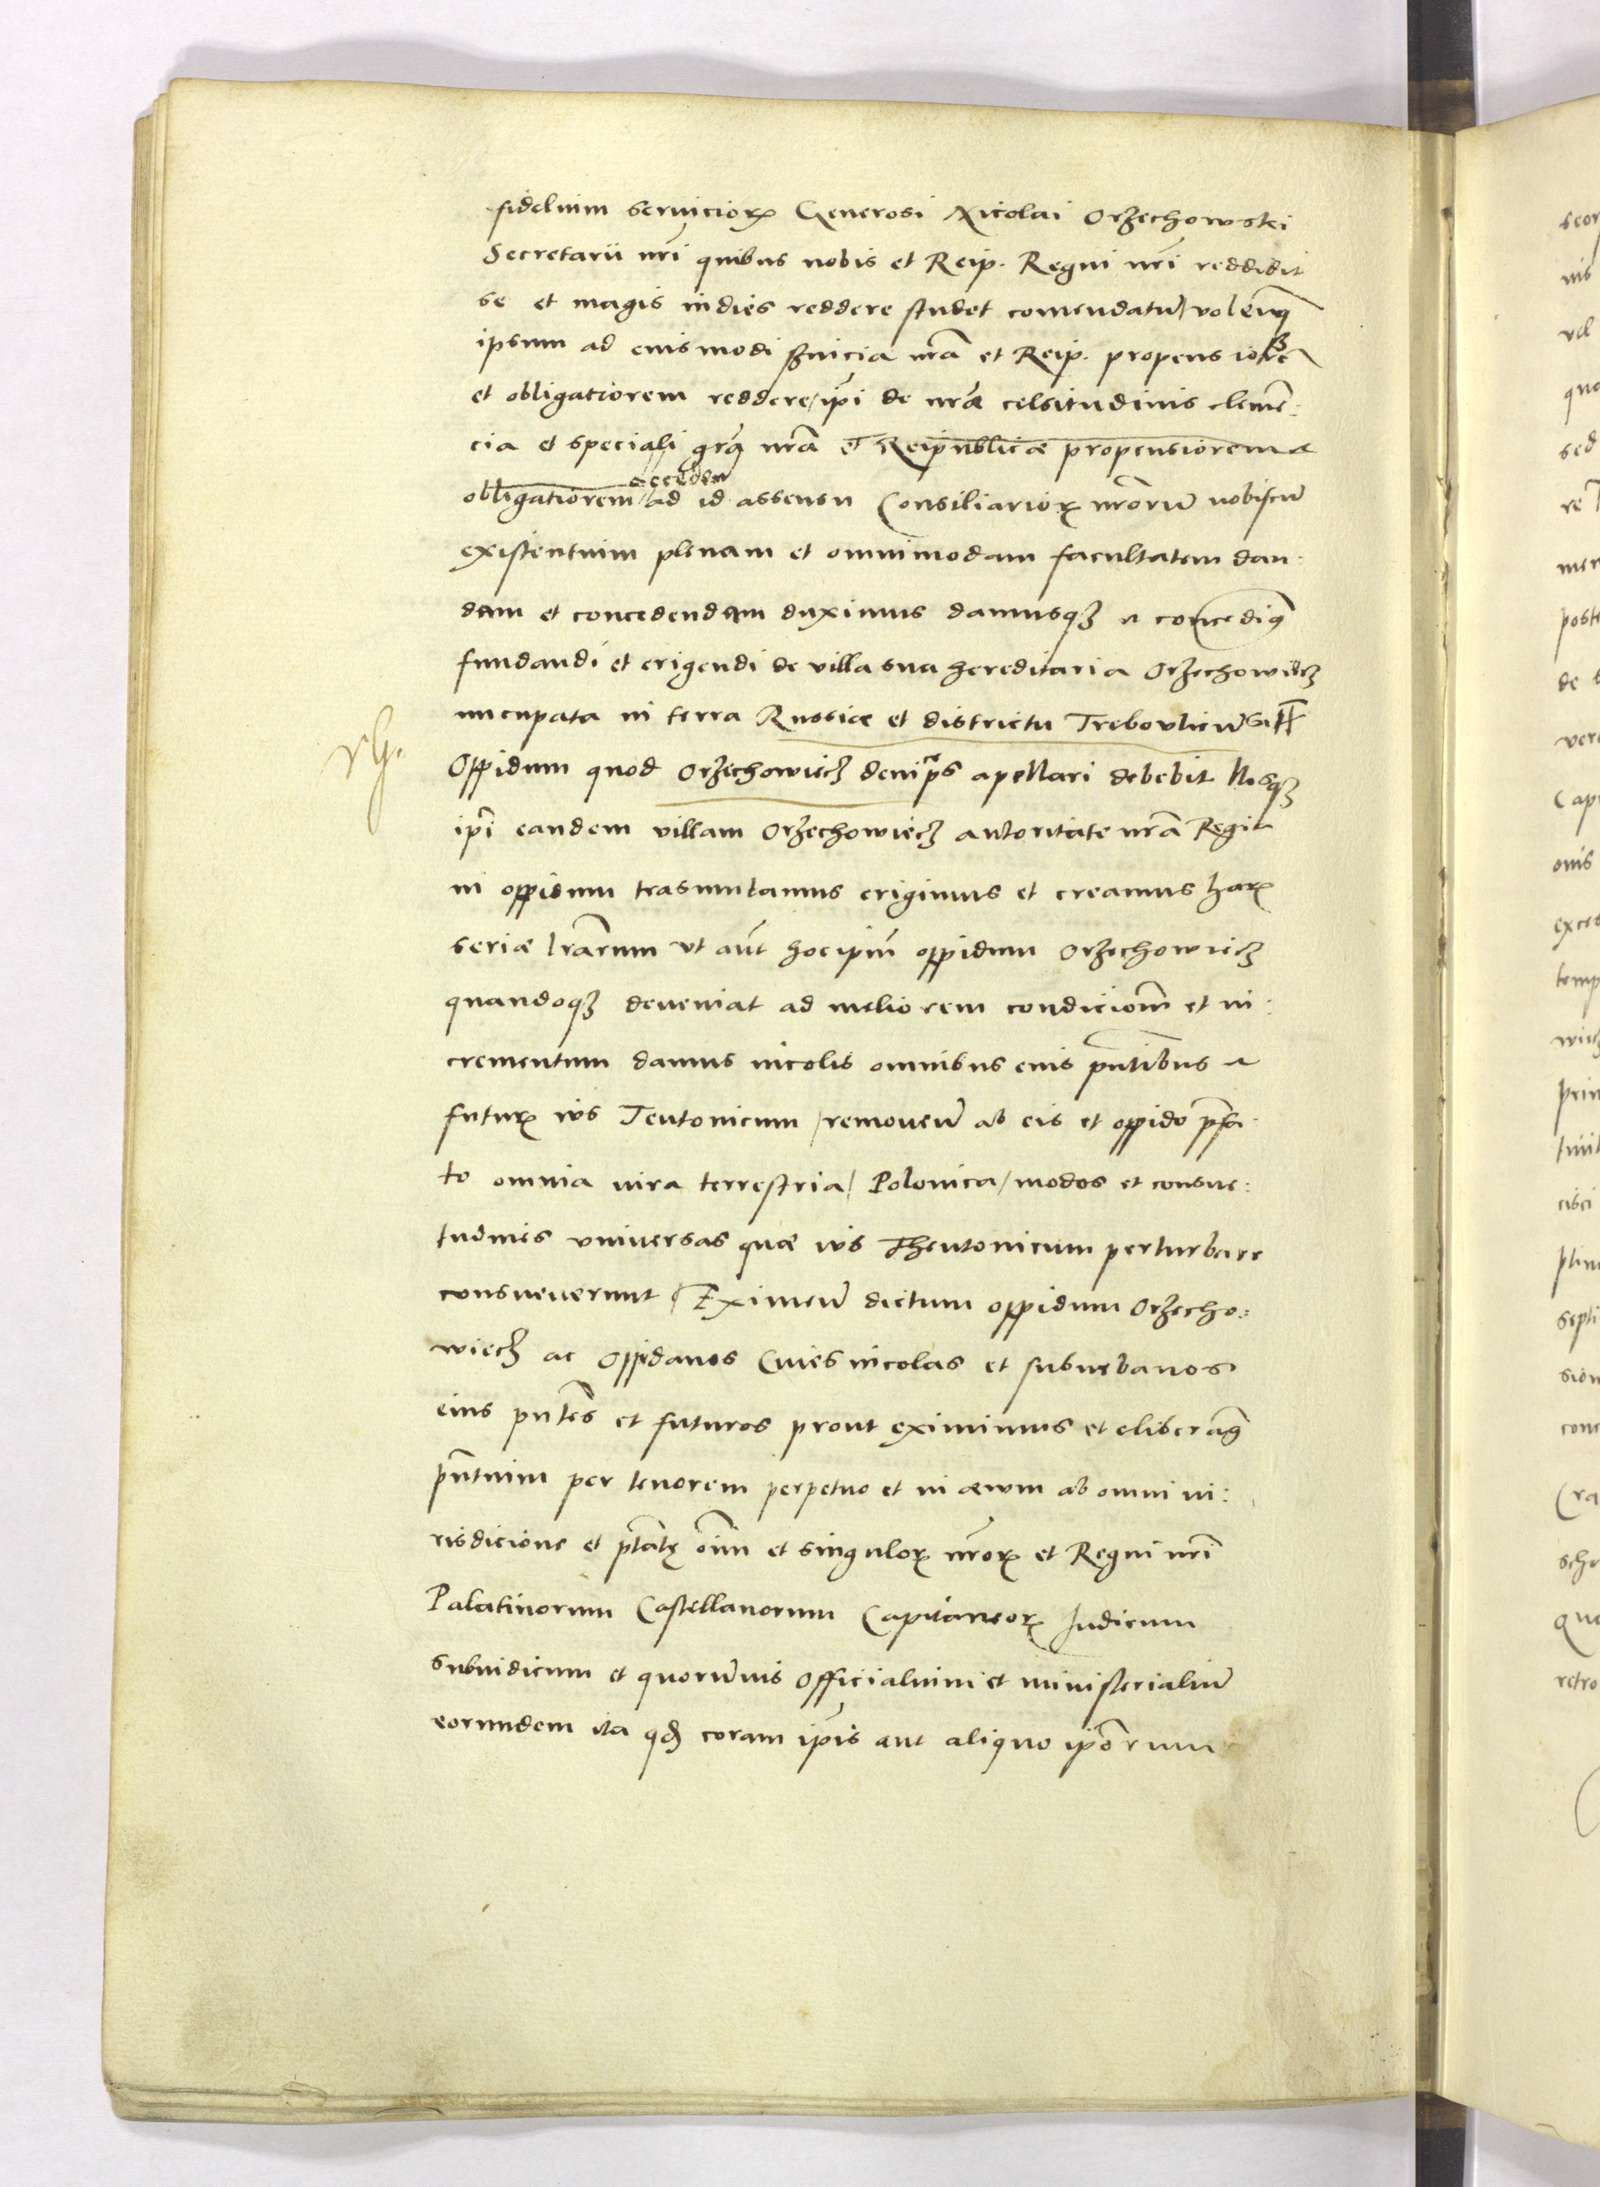 fidelium serviciorꝝ Generosi Nicolai Orzechowski
Secretarii nr̃i quibus nobis et Reip. Regni nr̃i reddidit
se et magis indies reddere studet comendatũ / volẽtesq̃
ipsum ad eiusmodi servicia nr̃a et Reip. propensiorẽ
et obligatiorem reddere / ip̃i de nr̃æ celsitudinis clemẽ:
cia et speciali gr̃a nr̃a et Reipublicæ propensiorem et
obligatiorem / accedẽ ad id assensu Consiliariorꝝ nr̃orum nobiscũ
existentium plenam et omnimodam facultatem dan
dam et concedendam duximus damusqȝ et concedim9
fundandi et erigendi de villa sua hereditaria Orzechowiecz
nuncupata in terra Russiæ et districtu Trebowlien̄ sit̃
Oppidum quod Orzechowiecz deinceps apellari debebit Nosqȝ
ip̃i eandem villam Orzechowiecz autoritate nr̃a Regia
in oppidum trasmutamus erigimus et creamus harꝝ
seriæ lr̃arum ut aũt hoc ip̃m oppidum Orzechowiecz
quandoqȝ deveniat ad meliorem condicionẽ et in:
crementum damus incolis omnibus eius pñtibus et
futurꝝ ius Teutonicum / removen̄ ab eis et oppido p̃fa
to omnia iura terrestria / Polonica / modos et consue:
tudines universas quæ ius Theutonicum perturbare
consueverunt / Eximen̄ dictum oppidum Orzecho:
wiecz ac Oppidanos Cives incolas et suburbanos
eius pñtes et futuros prout eximimus et eliberam9
pñtium per tenorem perpetuo et in ævum ab omni iu:
risdicione et p̃tate om̃i et singulorꝝ nr̃orꝝ et Regni nr̃i
Palatinorum Castellanorum Capitaneorꝝ Iudicum
Subiudicum et quorumvis Officialium et ministerialiũ
eorundem ita qđ coram ip̃is aut aliquo ip̃orum